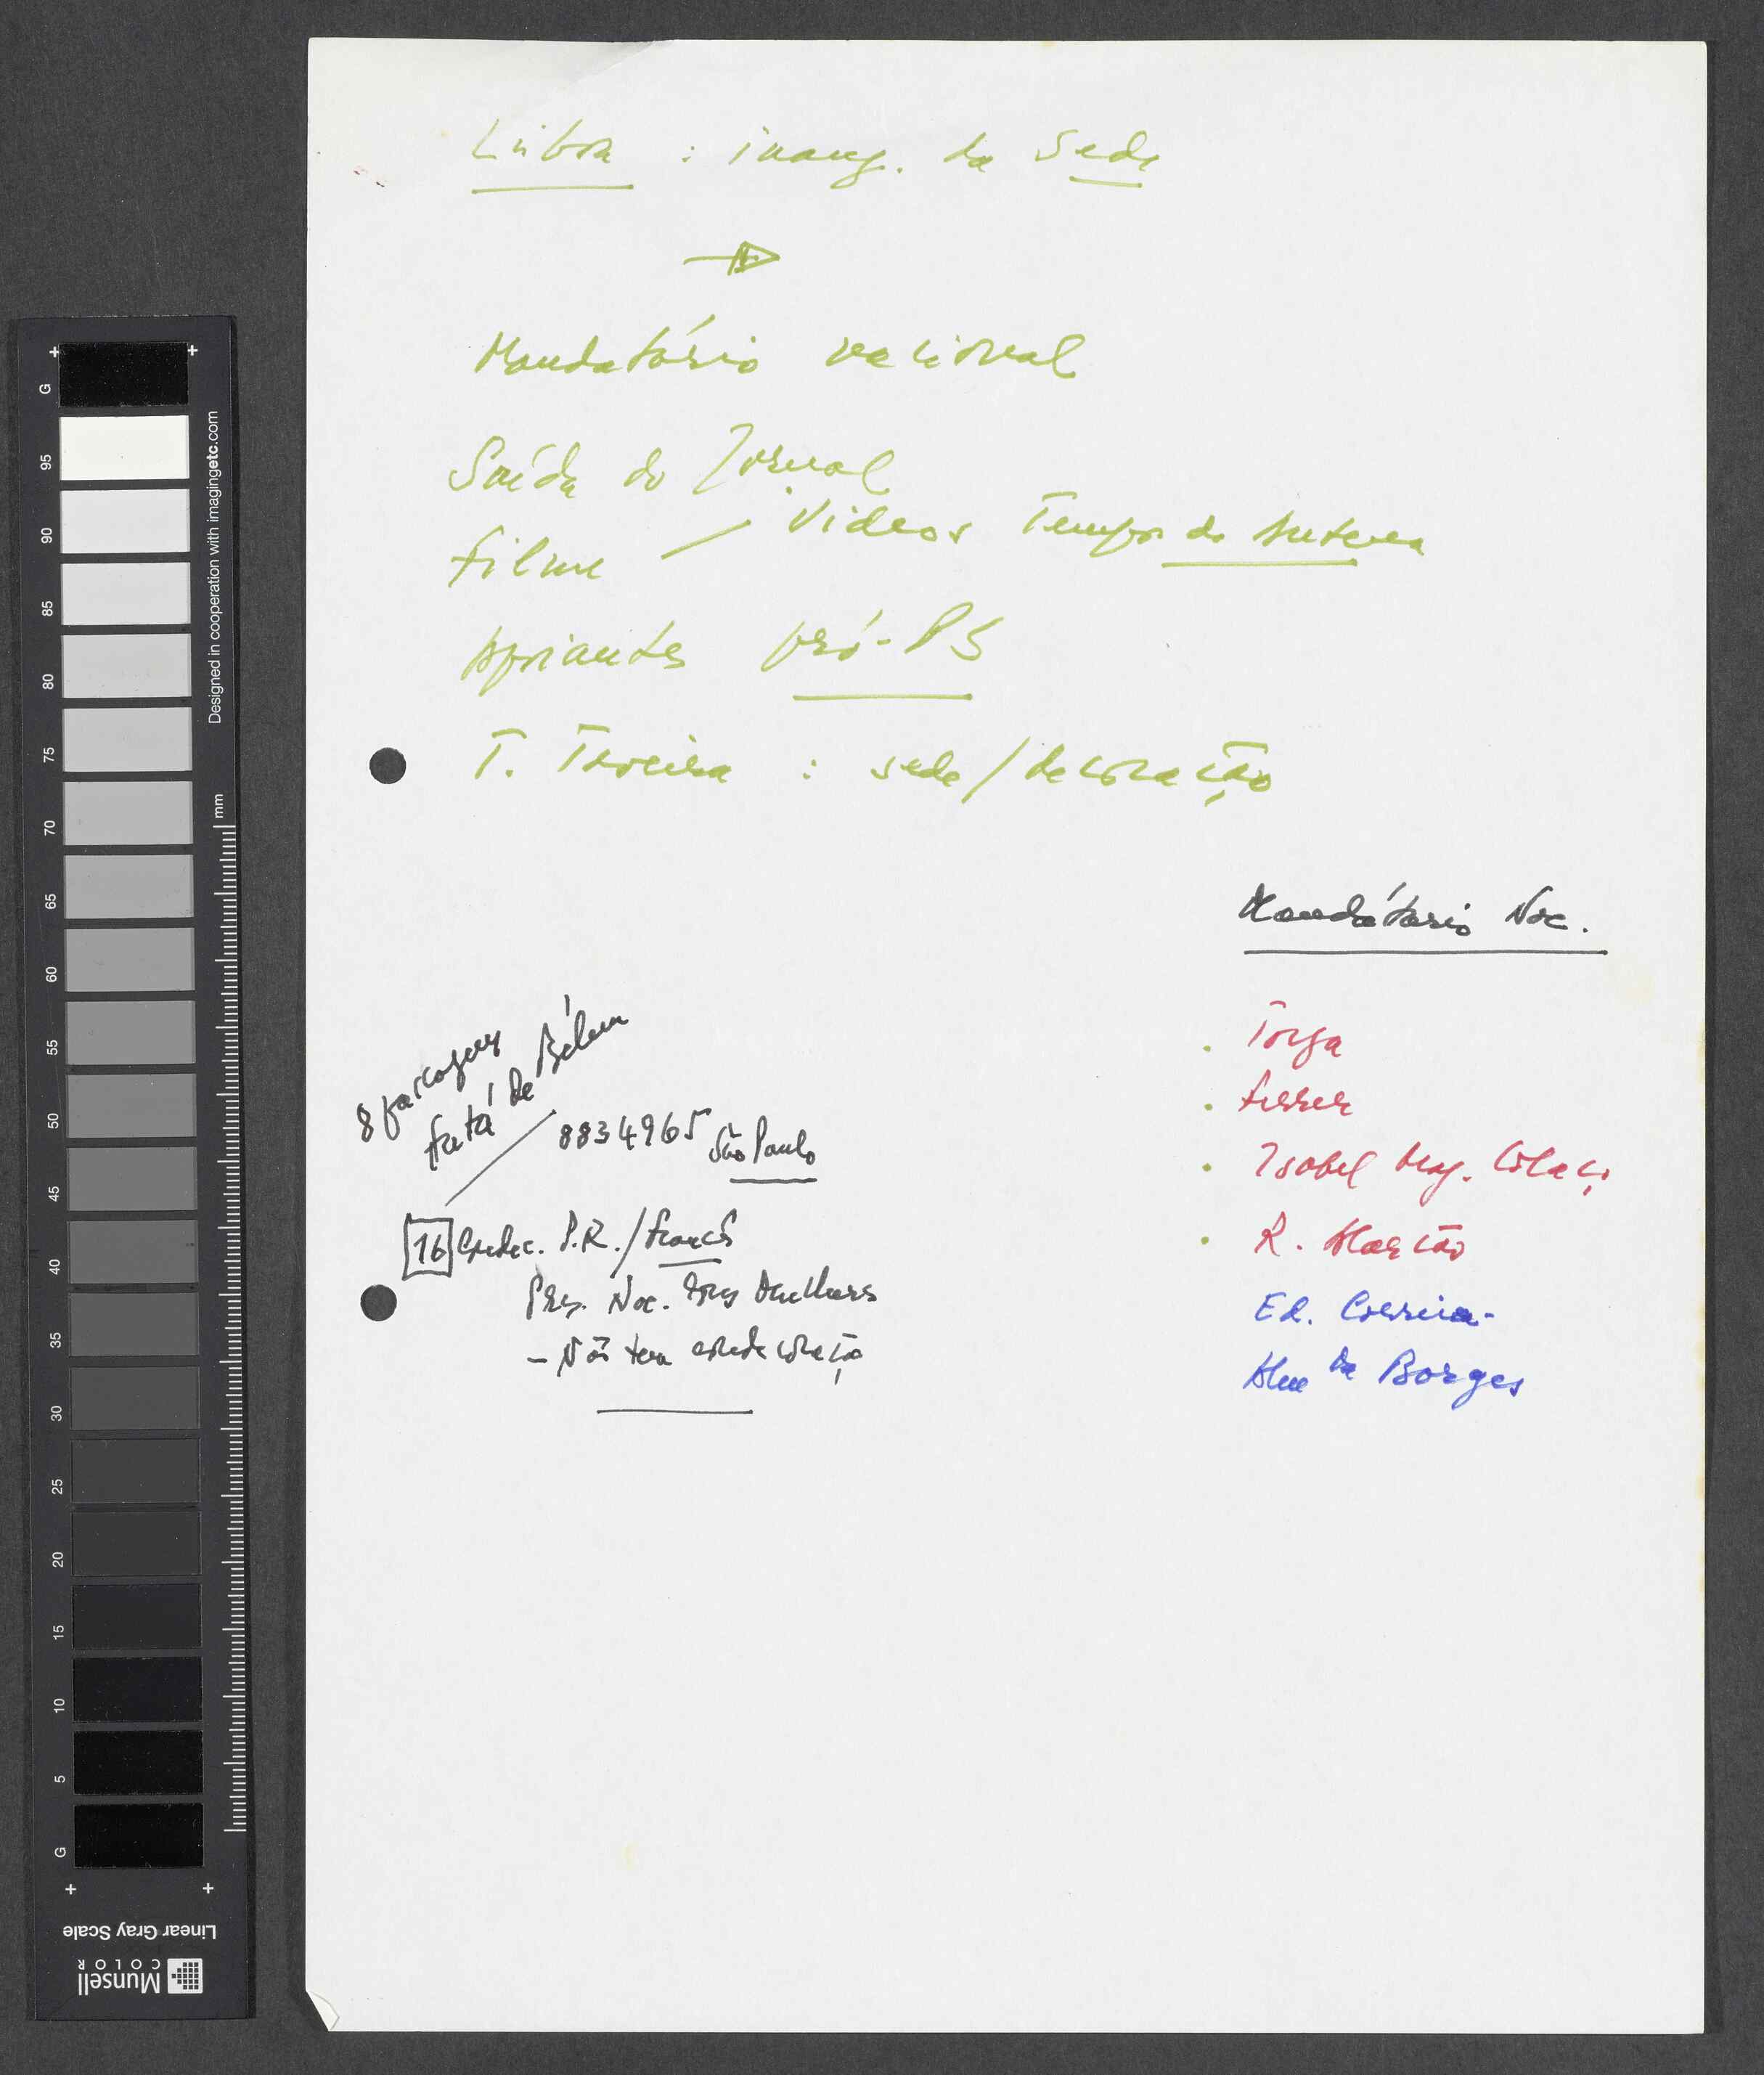 Lisboa : inaug. da Sede
Mandatário nacional
Saída do Jornal
Filme / Videos Tempos de Antena
Apoiantes pró-PS
T. Taveira : sede/decoração
Mandatário Nac.
Torga
Isabel Mag. Colaço
R. Alarcão
Ed. Correia
8
Fafá de Belém
8834965 São Paulo
16 Condec. P.R./francês
Nac. Mulheres
- Não tem condecoração
Borges
G
95
90
85
80
75
70
65
60
55
50
45
40
35
30
25
20
15
10
5
G
mm
Designed in cooperation with imagingetc.com
Linear Gray Scale
Munsell
COLOR